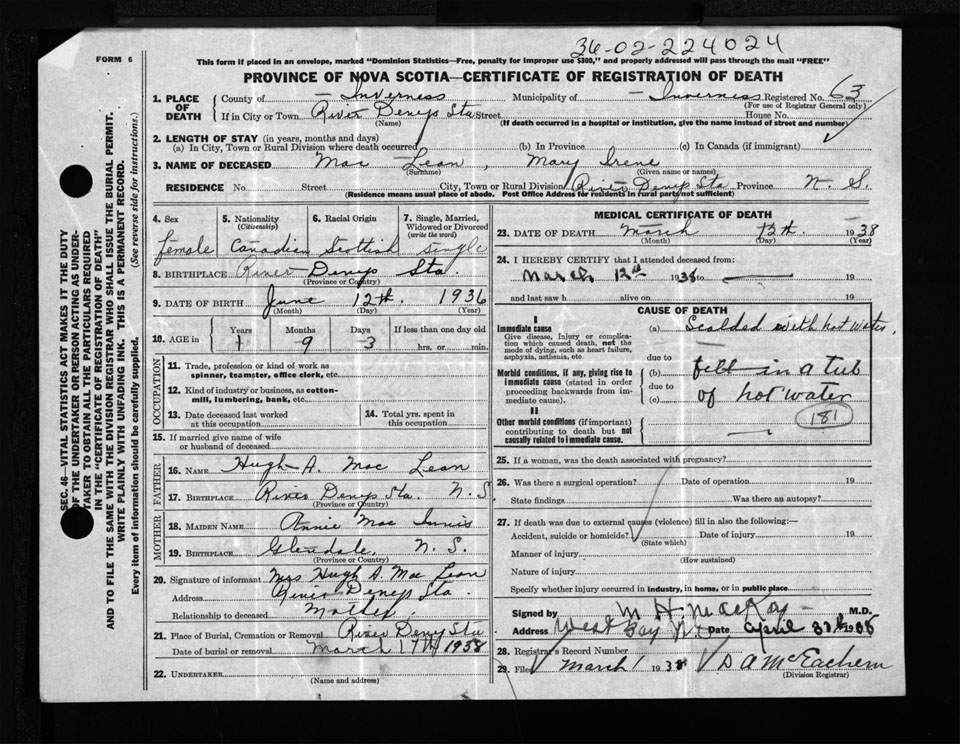 36-02-224024
FORM 6
This form if placed in an envelope, marked "Dominion Statistics—Free, penalty for improper use $300," and properly addressed will pass through the mail "FREE"
PROVINCE OF NOVA SCOTIA—CERTIFICATE OF REGISTRATION OF DEATH
1. PLACE OF DEATH
County of Inverness Municipality of Inverness Registered No. 63
(For use of Registrar General only)
If in City or Town River Denys Sta Street House No.
(Name) (If death occurred in a hospital or institution, give the name instead of street and number)
2. LENGTH OF STAY (in years, months and days)
(a) In City, Town or Rural Division where death occurred (b) In Province (c) In Canada (if immigrant)
3. NAME OF DECEASED Mac Lean, Mary Irene
(Surname) (Given name or names)
RESIDENCE No. Street City, Town or Rural Division River Denys Sta. Province N. S.
(Residence means usual place of abode. Post Office Address for residents in rural parts not sufficient)
4. Sex 5. Nationality (Citizenship) 6. Racial Origin 7. Single, Married, Widowed or Divorced (write the word)
female Canadian Scottish single
8. BIRTHPLACE River Denys Sta.
(Province or Country)
9. DATE OF BIRTH June 12th. 1936
(Month) (Day) (Year)
10. AGE in Years Months Days If less than one day old
1 9 3 hrs. or min.
OCCUPATION
11. Trade, profession or kind of work as spinner, teamster, office clerk, etc.
12. Kind of industry or business, as cotton-mill, lumbering, bank, etc.
13. Date deceased last worked at this occupation 14. Total yrs. spent in this occupation
15. If married give name of wife or husband of deceased
FATHER
16. NAME Hugh A. Mac Lean
17. BIRTHPLACE River Denys Sta. N. S.
(Province or Country)
MOTHER
18. MAIDEN NAME Annie Mac Innis
19. BIRTHPLACE Glendale, N. S.
(Province or Country)
20. Signature of informant Mrs Hugh A. Mac Lean
Address River Denys Sta.
Relationship to deceased Mother.
21. Place of Burial, Cremation or Removal River Denys Sta
Date of burial or removal March 17th 1938
22. UNDERTAKER
(Name and address)
MEDICAL CERTIFICATE OF DEATH
23. DATE OF DEATH March 12th. 1938
(Month) (Day) (Year)
24. I HEREBY CERTIFY that I attended deceased from:
March 12th 1938 to 19
and last saw h alive on 19
CAUSE OF DEATH
I
Immediate cause (a) Scalded with hot water,
Give disease, injury or complication which caused death, not the mode of dying, such as heart failure, asphyxia, asthenia, etc.
due to
Morbid conditions, if any, giving rise to immediate cause (stated in order proceeding backwards from immediate cause).
(b) fell in a tub
due to
(c) of hot water
181
II
Other morbid conditions (if important) contributing to death but not causally related to immediate cause.
25. If a woman, was the death associated with pregnancy?
26. Was there a surgical operation? Date of operation 19
State findings Was there an autopsy?
27. If death was due to external causes (violence) fill in also the following:—
Accident, suicide or homicide? Date of injury 19
(State which)
Manner of injury
(How sustained)
Nature of injury
Specify whether injury occurred in industry, in home, or in public place
Signed by M. H. MacKay M.D.
Address West Bay N.S. Date April
28. Registrar's Record Number
29. Filed March 1938 D A McEachern
(Division Registrar)
SEC. 46—VITAL STATISTICS ACT MAKES IT THE DUTY
OF THE UNDERTAKER OR PERSON ACTING AS UNDER-
TAKER TO OBTAIN ALL THE PARTICULARS REQUIRED
IN THE "CERTIFICATE OF REGISTRATION OF DEATH"
AND TO FILE THE SAME WITH THE DIVISION REGISTRAR WHO SHALL ISSUE THE BURIAL PERMIT.
WRITE PLAINLY WITH UNFADING INK. THIS IS A PERMANENT RECORD.
Every item of information should be carefully supplied. (See reverse side for instructions.)